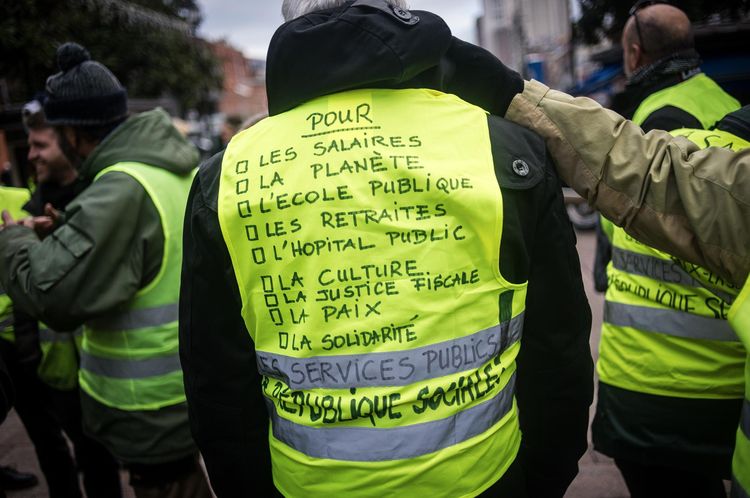 POUR
LES SALAIRES
LA PLANÈTE
L'ECOLE PUBLIQUE
LES RETRAITES
L'HOPITAL PUBLIC
LA CULTURE
LA JUSTICE FISCALE
LA PAIX
LA SOLIDARITÉ
LES SERVICES PUBLICS
RÉPUBLIQUE SOCIALE
SERVICES
RÉPUBLIQUE